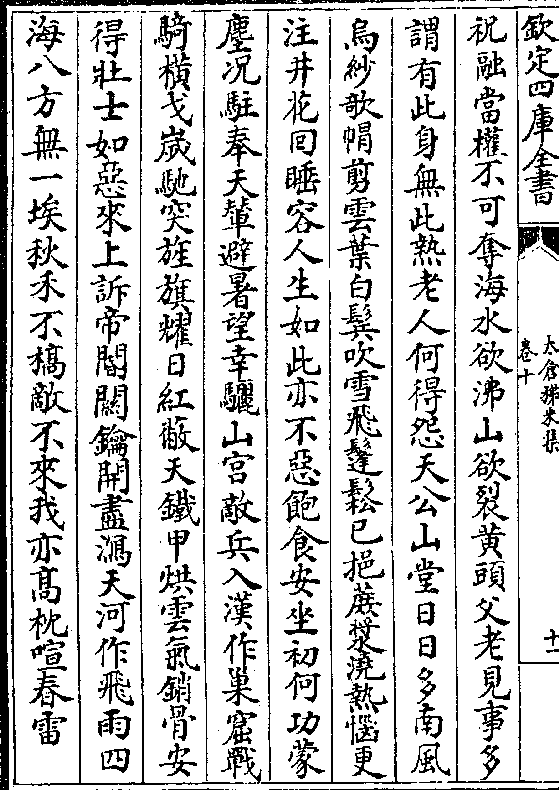 欽定四庫全書
太倉稊米集
卷十
十一
祝融當權不可奪海水欲沸山欲裂黄頭父老見事多
謂有此身無此熱老人何得怨天公山堂日日多南風
烏紗歌帽剪雲葉白鬓吹雪飛鬔鬆已挹蔗漿澆熱惱更
注井花回睡容人生如此亦不惡飽食安坐初何功蒙
塵况駐奉天輦避暑望幸驪山宫敵兵入漢作巢窟戰
騎横戈嵗馳突旌旗耀日紅蔽天鐵甲烘雲氣銷骨安
得壯士如惡來上訴帝閽闗鑰開盡㵼天河作飛雨四
海八方無一埃秋禾不槁敵不來我亦髙枕喧春雷